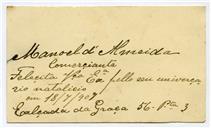 Manoel d'Almeida
Comerciante
Felecita V.ª Ex.ª pello seu univerça
rio natalicio
em 18/7/907
Calçada da Graça 56-